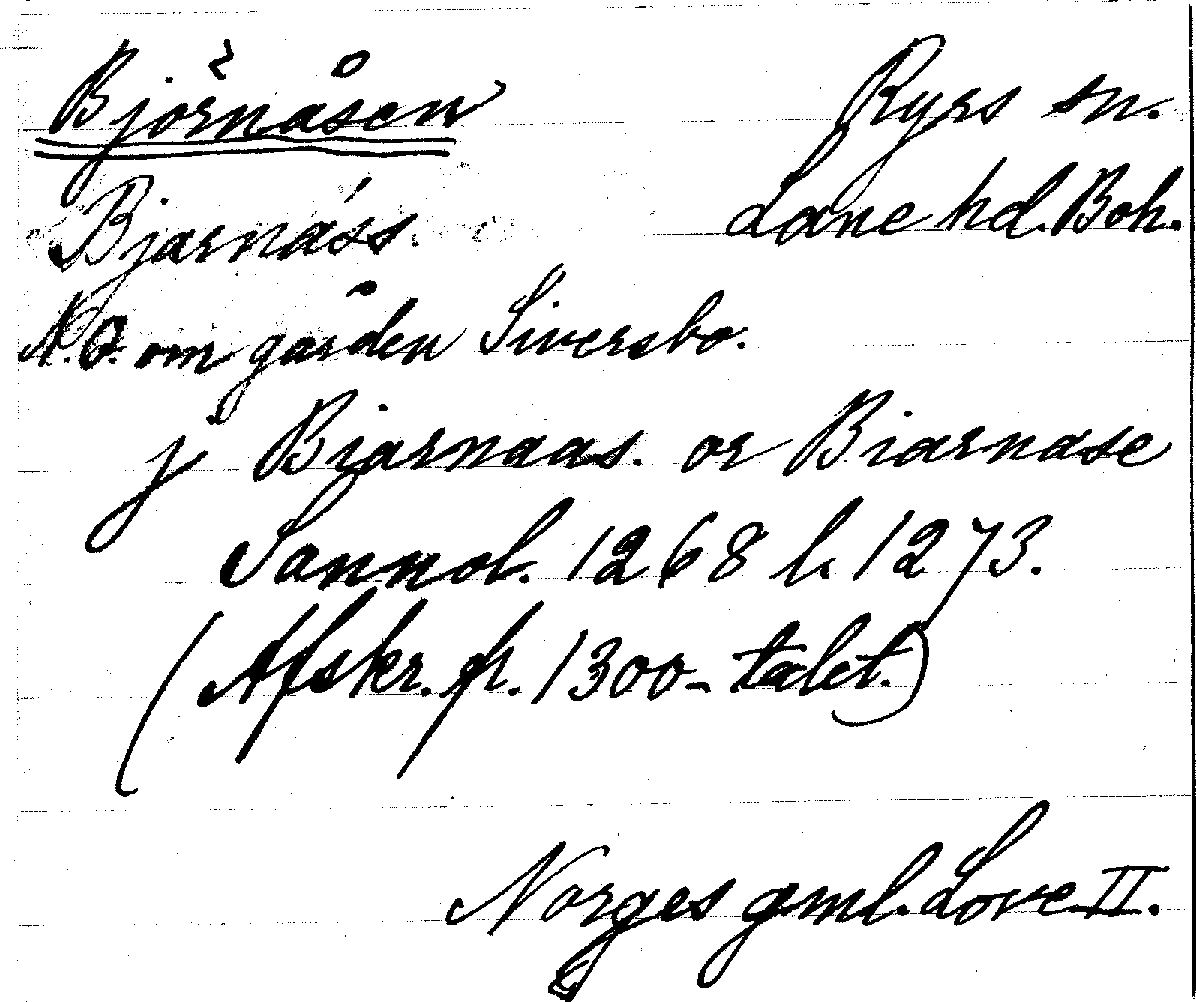 Björnåsen
Ryrs sn.
Lane hd. Boh.
Bjarnáss.
N.O. om gården Siversbo.
j Biarnaas. or Biarnase
Sannol. 1268 l. 1273.
(Afskr. fr. 1300-talet.)
Norges gml. Love II.